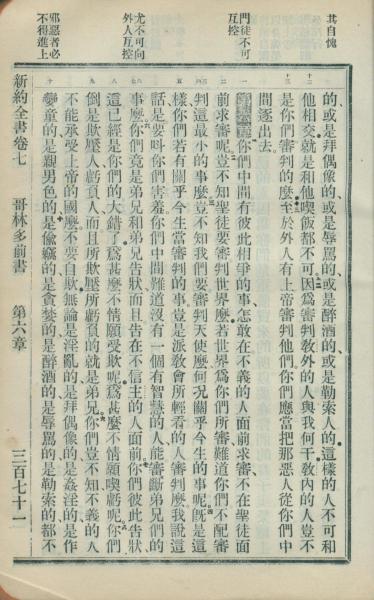 其自愧
門徒不可
互控
尤不可向
外人互控
邪惡者必
不得進上
的或是拜偶像的或是辱罵的或是醉酒的或是勒索人的這樣的人不可和
十二
他相交就是和他喫飯都不可因爲審判敎外的人與我何干敎內的人豈不
十三
是你們審判的麼至於外人有上帝審判他們你們應當把那惡人從你們中
間逐出去
一
你們中間有彼此相爭的事怎敢在不義的人面前求審不在聖徒面
二
前求審呢豈不知聖徒要審判世界麼若世界爲你們所審難道你們不配審
三
判這最小的事麼豈不知我們要審判天使麼何况關乎今生的事呢旣是這
四
樣你們若有關乎今生當審判的事豈是派敎會所輕看的人審判麼我說這
五
話是要呌你們害羞你們中間難道沒有一個有智慧的人能審斷弟兄們的
六
事麼你們竟是弟兄和弟兄告狀而且告在不信主的人面前你們彼此告狀
七
這已經是你們的大錯了爲甚麼不情願受欺呢爲甚麼不情願喫虧呢你們
八
九
倒是欺壓人虧負人而且所欺壓所虧負的就是弟兄你們豈不知不義的人
不能承受上帝的國麼不要自欺無論是淫亂的是拜偶像的是姦淫的是作
十
孌童的是親男色的是偷竊的是貪婪的是醉酒的是辱罵的是勒索的都不
新約全書卷七　哥林多前書　第六章　三百七十一